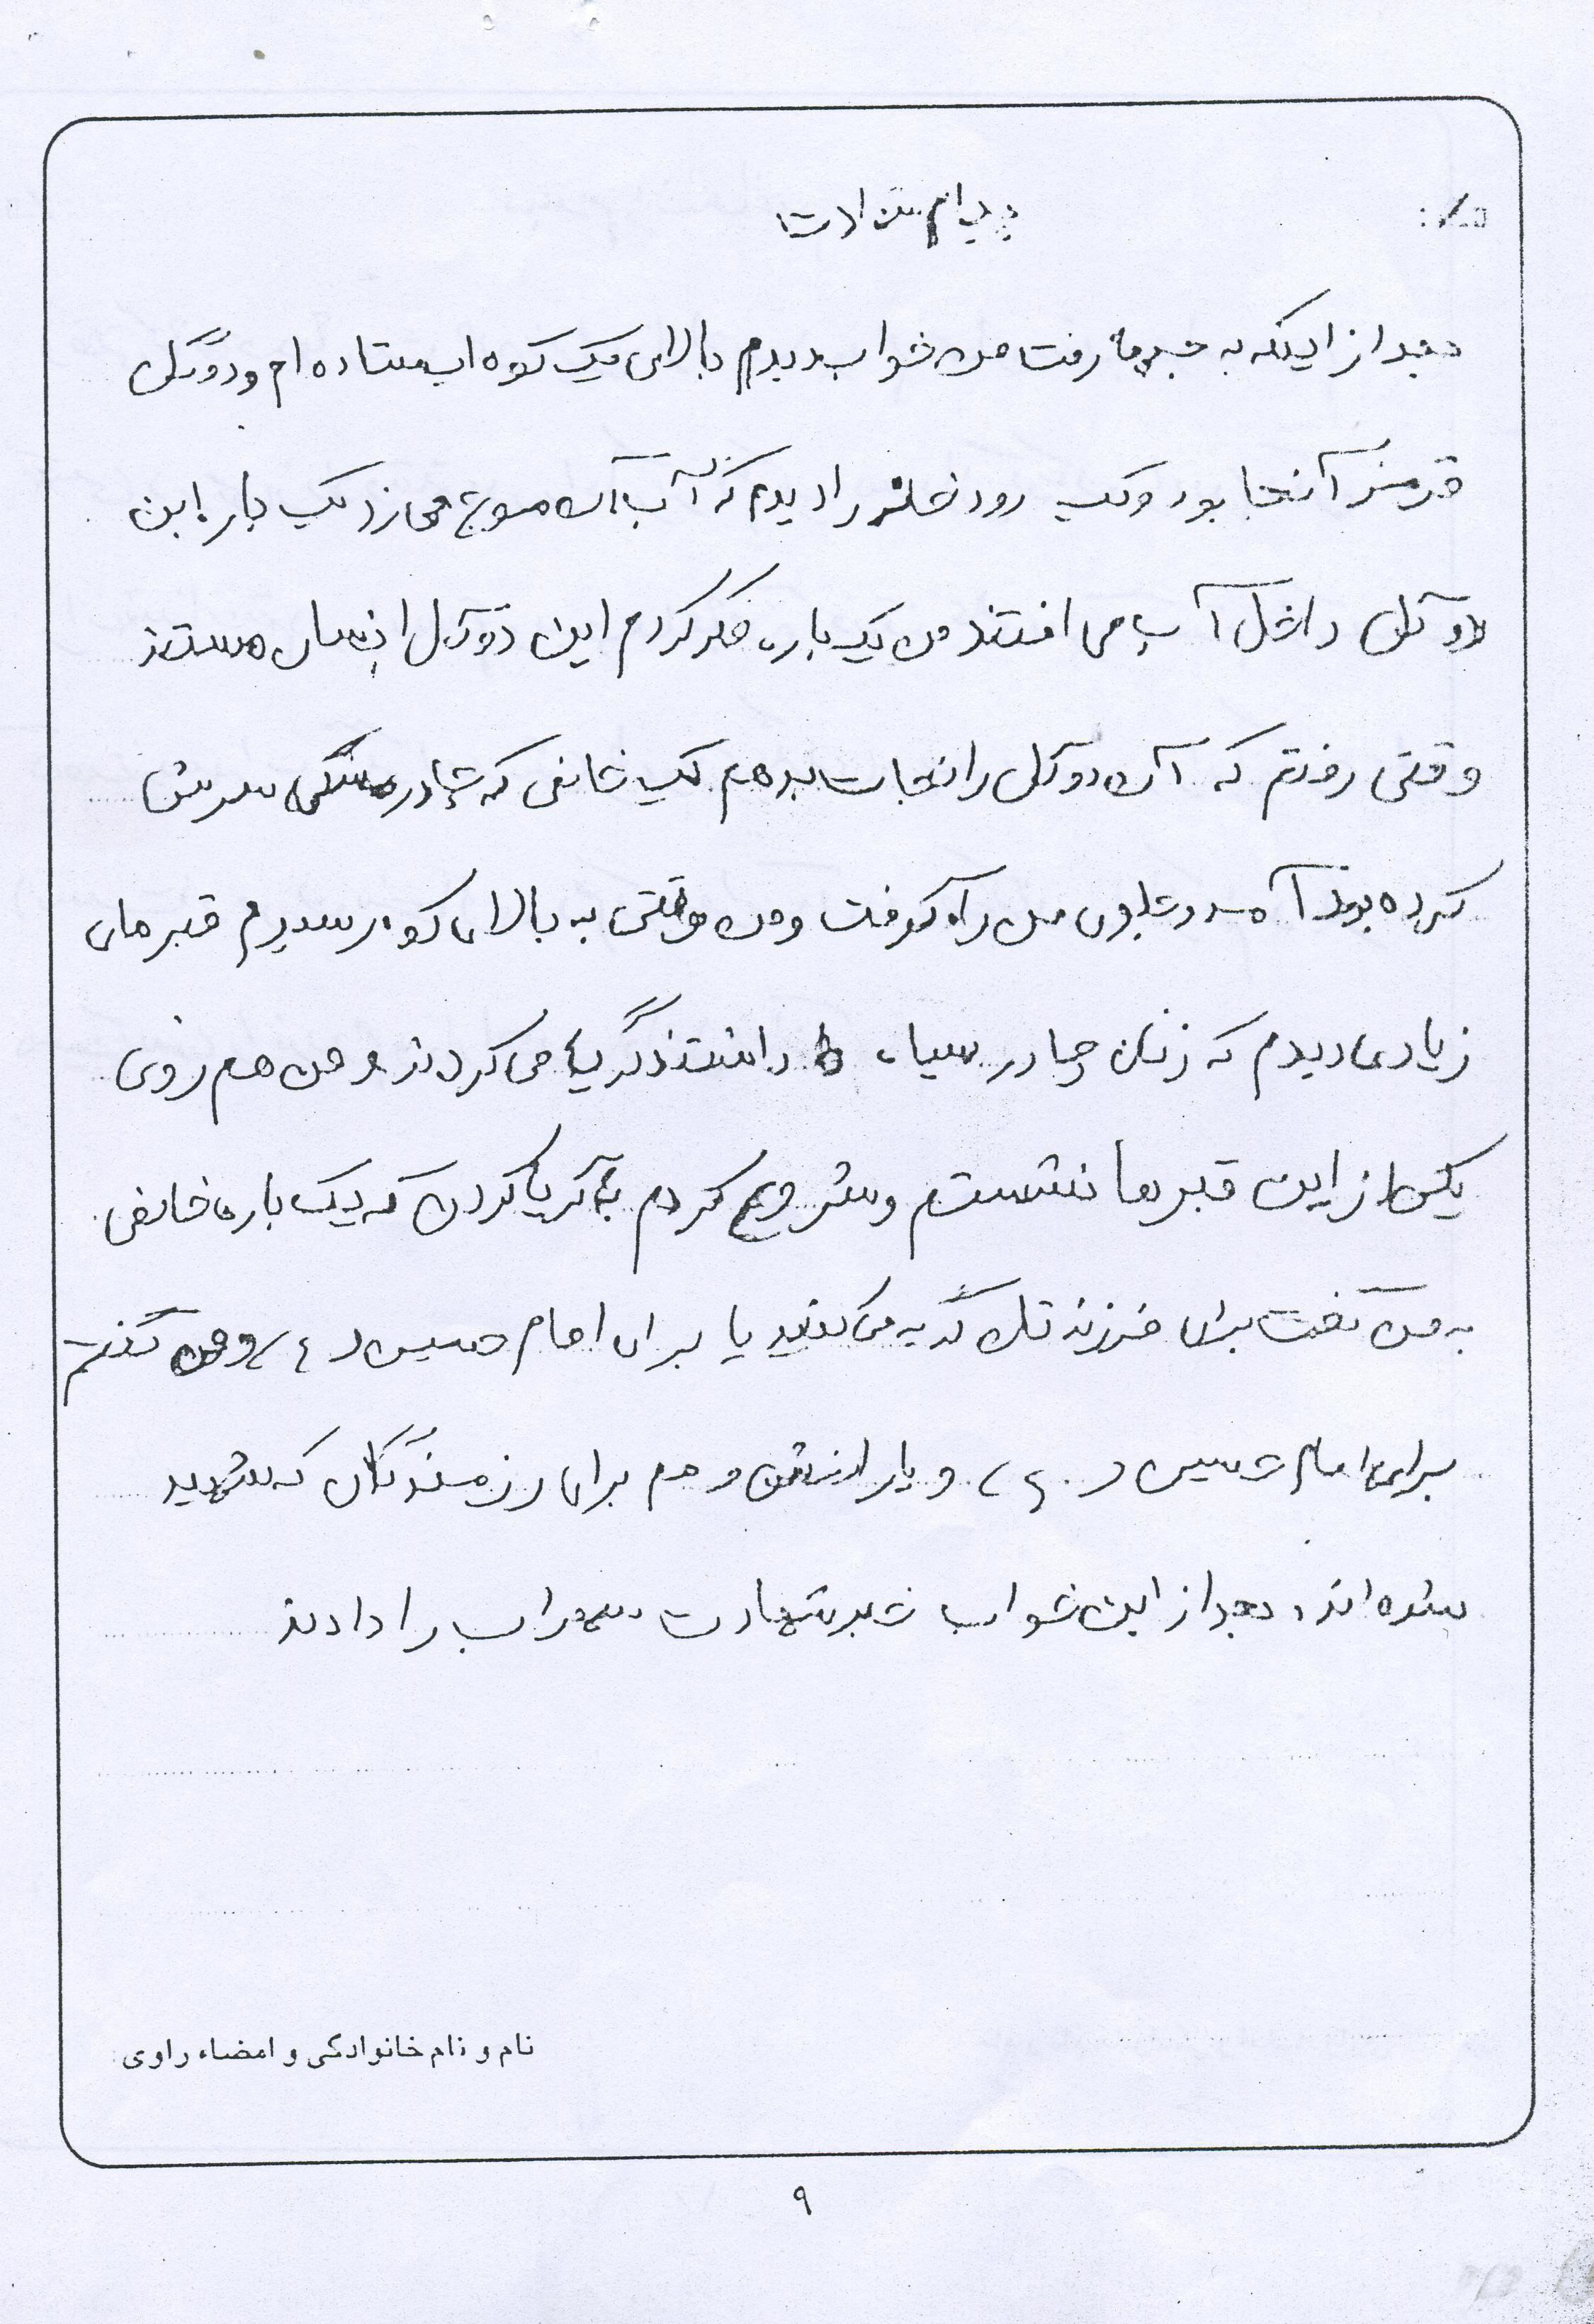 پیام شهادت
بعد از اینکه به جبهه رفت من خواب دیدم بالای یک کوه ایستاده ام و دو گل
قرمز آنجا بود و یک رودخانه را دیدم که آب آن موج می زد یک باره این
دو گل داخل آب می افتند من یک باره فکر کردم این دو گل انسان هستند
وقتی رفتم که آن دو گل را نجات بدهم یک خانمی که چادر مشکی سرش
کرده بود آمد و جلوی من را گرفت و من وقتی به بالای کوه رسیدم قبرهای
زیادی دیدم که زنان چادر سیاه داشتند گریه می کردند و من هم روی
یکی از این قبرها نشستم و شروع کردم به گریا کردن که یک باره خانمی
به من گفت برای فرزندتان گریه می کنید یا برای امام حسین (ع) و من گفتم
برای امام حسین (ع) و یارانش و هم برای رزمندگان که شهید
شده اند، بعد از این خواب خبر شهادت سهراب را دادند
نام و نام خانوادگی و امضاء راوی
۹